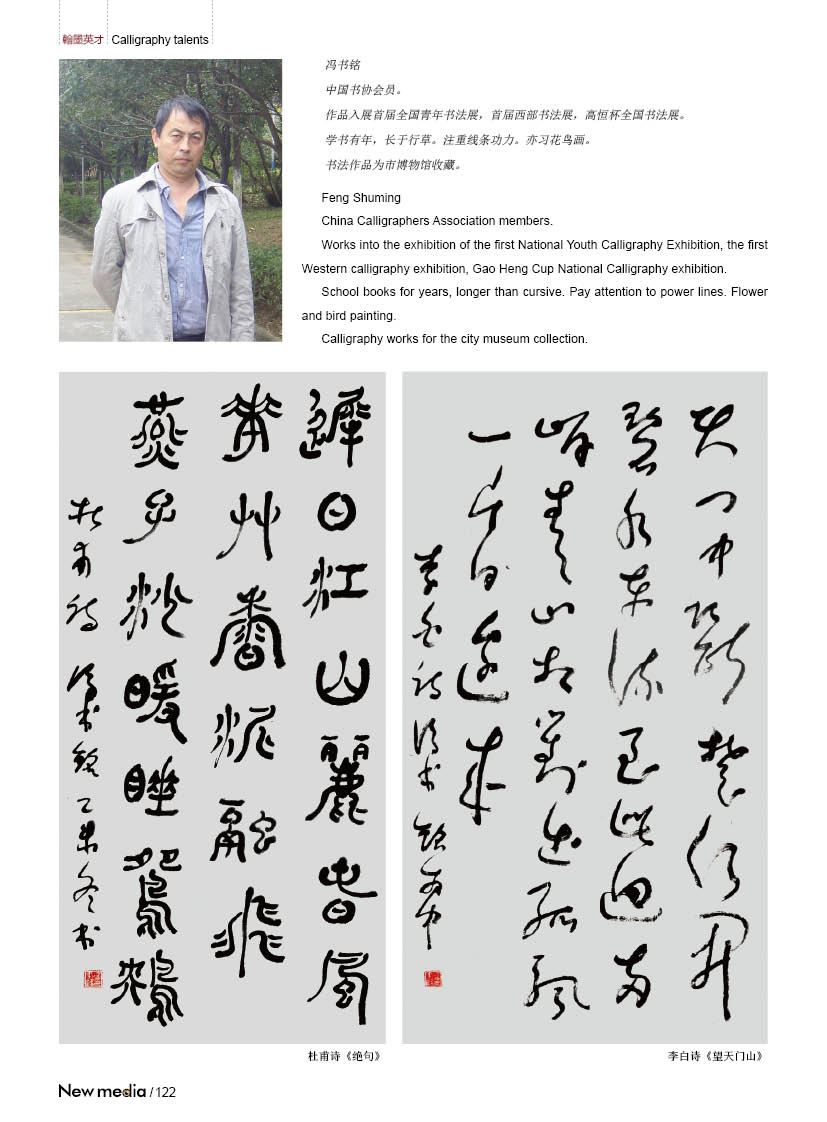 翰墨英才 Calligraphy talents
冯书铭
中国书协会员。
作品入展首届全国青年书法展，首届西部书法展，高恒杯全国书法展。
学书有年，长于行草。注重线条功力。亦习花鸟画。
书法作品为市博物馆收藏。
Feng Shuming
China Calligraphers Association members.
Works into the exhibition of the first National Youth Calligraphy Exhibition, the first
Western calligraphy exhibition, Gao Heng Cup National Calligraphy exhibition.
School books for years, longer than cursive. Pay attention to power lines. Flower
and bird painting.
Calligraphy works for the city museum collection.
遲日江山麗春風
華艸香泥融飛
燕子沙暖睡鴛鴦
杜甫詩 馮書銘 乙未冬书
天門中斷楚江開
碧水東流至此迴兩
岸青山相對出孤帆
一片日邊來
李白詩 馮书銘 丙申
杜甫诗《绝句》
李白诗《望天门山》
New media / 122